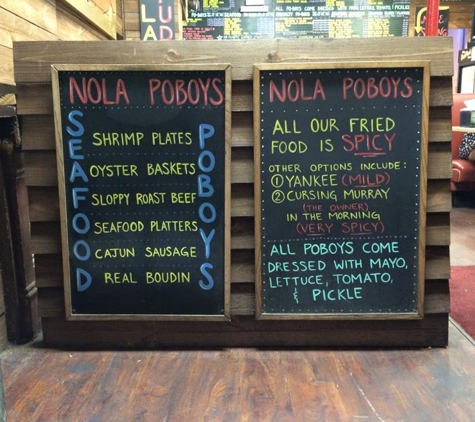 ALL POBOYS COME DRESSED WITH MAYO, LETTUCE, TOMATO, PICKLES
NOLA POBOYS
SEAFOOD
SHRIMP PLATES
OYSTER BASKETS
SLOPPY ROAST BEEF
SEAFOOD PLATTERS
CAJUN SAUSAGE
REAL BOUDIN
POBOYS
NOLA POBOYS
ALL OUR FRIED
FOOD IS SPICY
OTHER OPTIONS INCLUDE:
① YANKEE (MILD)
② CURSING MURRAY
(THE OWNER)
IN THE MORNING
(VERY SPICY)
ALL POBOYS COME
DRESSED WITH MAYO,
LETTUCE, TOMATO,
& PICKLE